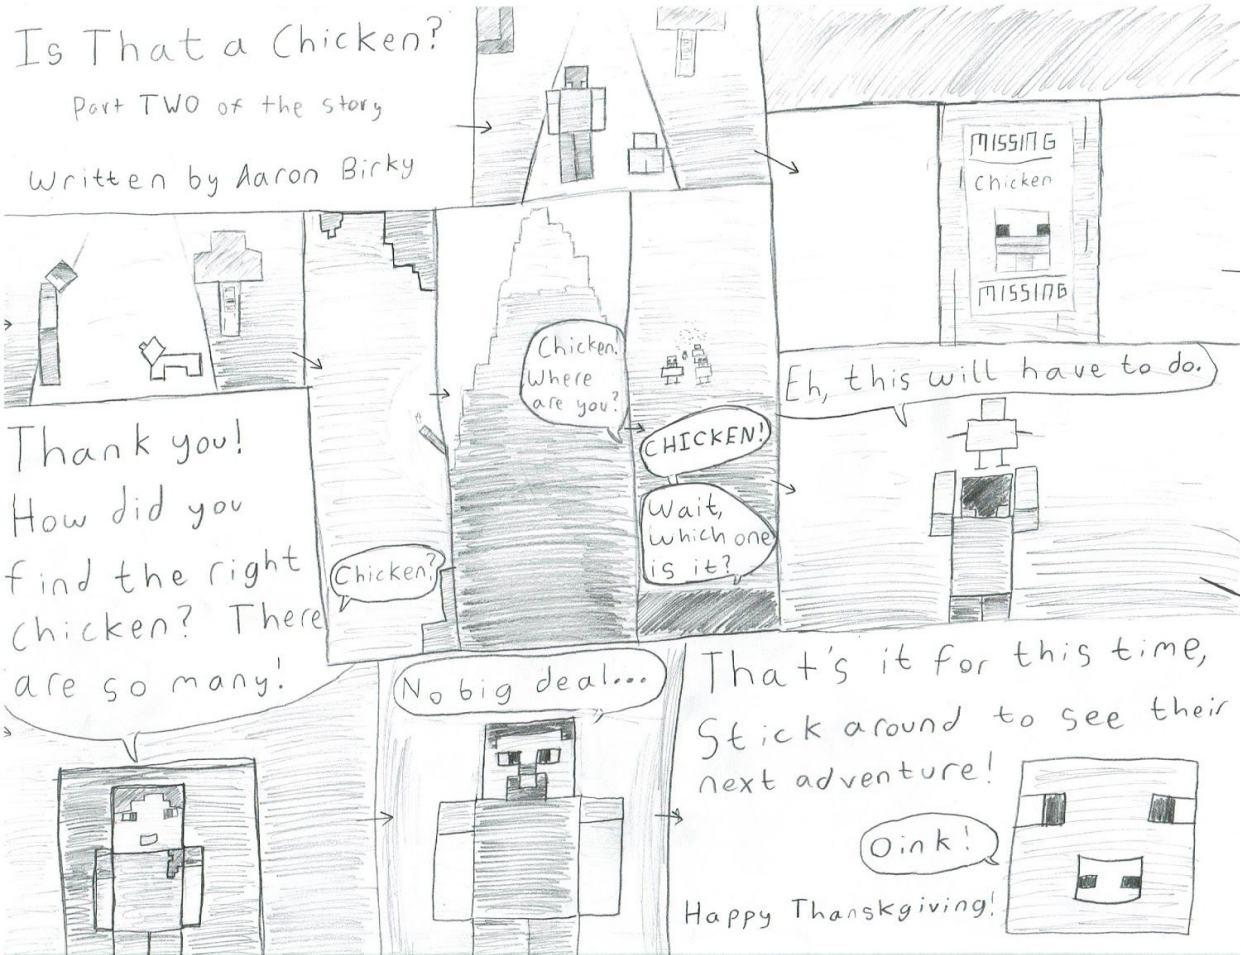 Is That a Chicken?
Part TWO of the story
Written by Aaron Birky
MISSING
Chicken
MISSING
Chicken?
Chicken!
Where
are you?
CHICKEN!
Wait,
which one
is it?
Eh, this will have to do.
Thank you!
How did you
find the right
chicken? There
are so many!
No big deal...
That's it for this time,
Stick around to see their
next adventure!
Oink!
Happy Thanskgiving!